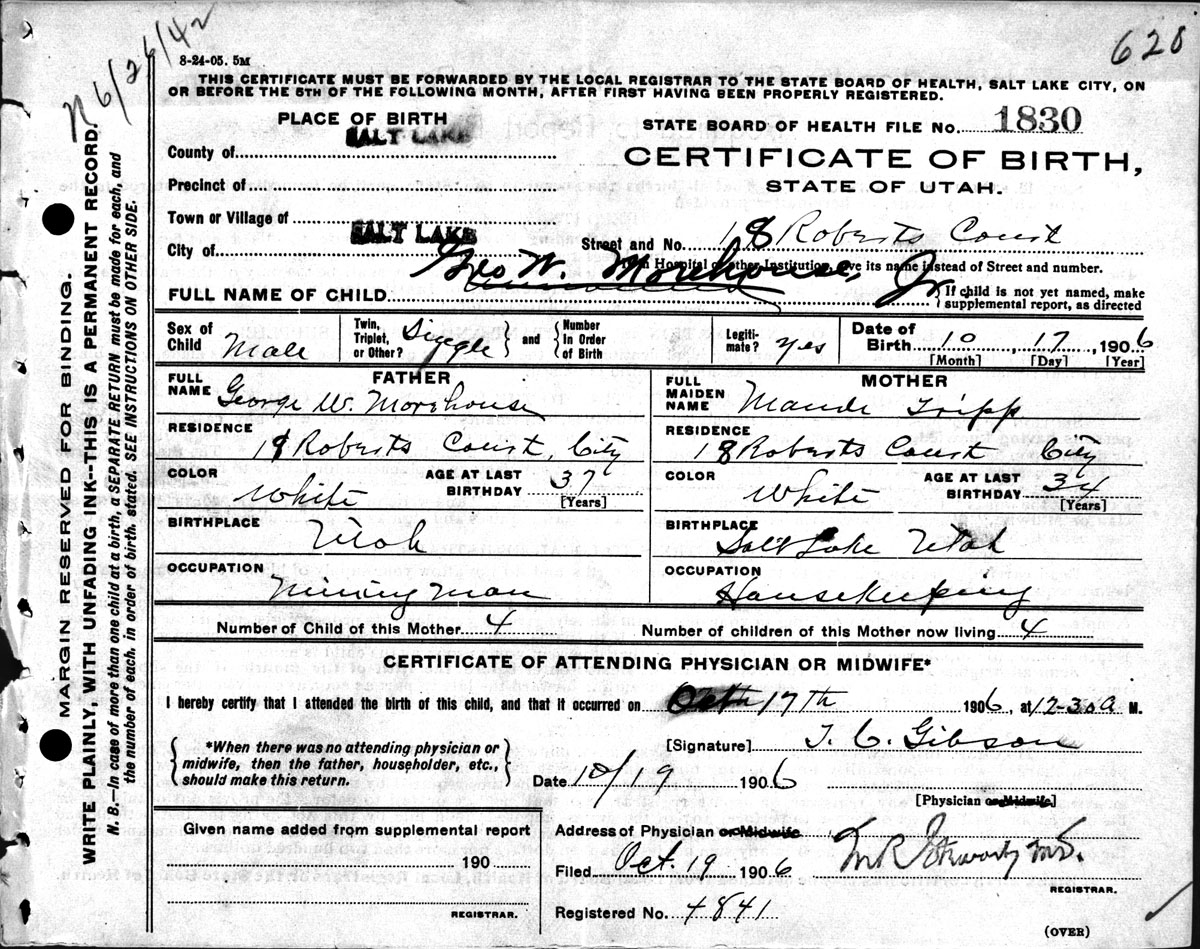 N 6/26/42
628
8-24-05. 5M
THIS CERTIFICATE MUST BE FORWARDED BY THE LOCAL REGISTRAR TO THE STATE BOARD OF HEALTH, SALT LAKE CITY, ON
OR BEFORE THE 5TH OF THE FOLLOWING MONTH, AFTER FIRST HAVING BEEN PROPERLY REGISTERED.
PLACE OF BIRTH
STATE BOARD OF HEALTH FILE NO. 1830
County of SALT LAKE
CERTIFICATE OF BIRTH,
STATE OF UTAH.
Precinct of
Town or Village of
City of SALT LAKE
Street and No. 18 Roberts Court
Hospital or other Institution, give its name instead of Street and number.
FULL NAME OF CHILD Geo W. Morehouse, Jr
If child is not yet named, make
supplemental report, as directed
Sex of Child Male
Twin, Triplet, or Other? Single and Number In Order of Birth
Legitimate? Yes
Date of Birth 10, 17, 1906
[Month] [Day] [Year]
FATHER
FULL NAME George W. Morehouse
RESIDENCE 18 Roberts Court, City
COLOR White
AGE AT LAST BIRTHDAY 37
[Years]
BIRTHPLACE Utah
OCCUPATION Mining man
MOTHER
FULL MAIDEN NAME Maude Tripp
RESIDENCE 18 Roberts Court City
COLOR White
AGE AT LAST BIRTHDAY 34
[Years]
BIRTHPLACE Salt Lake Utah
OCCUPATION Housekeeping
Number of Child of this Mother 4
Number of children of this Mother now living 4
CERTIFICATE OF ATTENDING PHYSICIAN OR MIDWIFE*
I hereby certify that I attended the birth of this child, and that it occurred on Oct 17th 1906, at 12-30 a M.
*When there was no attending physician or
midwife, then the father, householder, etc.,
should make this return.
[Signature] T. C. Gibson
Date 10/19 1906
[Physician or Midwife]
Given name added from supplemental report
190
REGISTRAR.
Address of Physician or Midwife
Filed Oct. 19 1906
M.D.
REGISTRAR.
Registered No. 4841
(OVER)
MARGIN RESERVED FOR BINDING.
WRITE PLAINLY, WITH UNFADING INK--THIS IS A PERMANENT RECORD.
N. B.—In case of more than one child at a birth, a SEPARATE RETURN must be made for each, and
the number of each, in order of birth, stated. SEE INSTRUCTIONS ON OTHER SIDE.